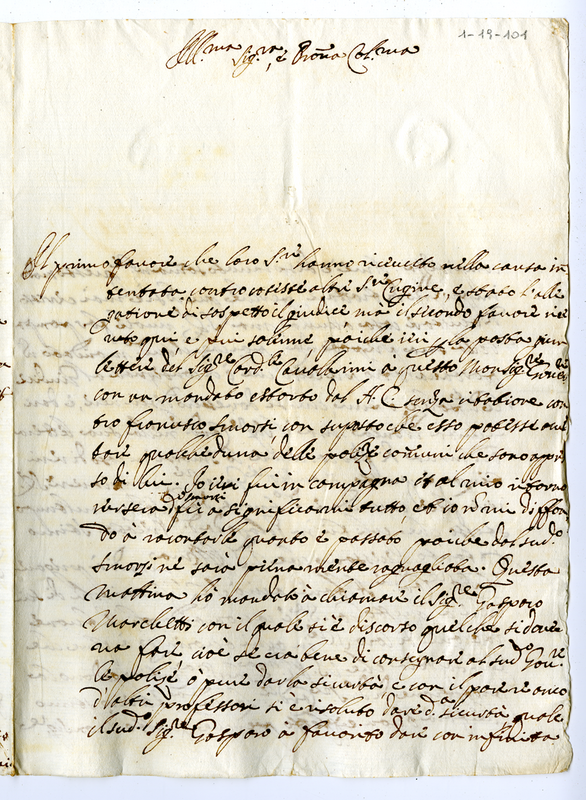 1-19-101
Ill.ma Sig.ra, e Pròna Col.ma
Il primo favore che loro S.re hanno ricevuto nella causa in
tentata contro coteste altre S.re Cugine, è stato l'alle
ratione di sospetto il giudice ma il secondo favore rice
vuto qui è più solenne poiche ieri la posta
lettere del Sig.re Card.le Cavallerini à questo Monsig.re Gover
con un mandato estorto dal A. C. senza citatione con
tro Smorti con supposto che esso potesse
tare qualcheduna delle polize comuni che sono appre
so di lui. Io ieri fui in campagna et al mio ritorno
verso sera d.o Smorti fù à significarmi tutto, et io non mi diffon
do à racontarle quanto è passato poiche dal sud.o
Smorti ne sarà pienamente raguagliata. Questa
mattina hò mandato à chiamare il Sig.re Gasparo
Marchetti con il quale si è discorso quel che si dove
va fare cioè se era bene di consegnare al sud.o Gov.re
le polize o pure dar la sicurtà, e con il parere anco
d'altri professori si è risoluto dare d.a sicurtà, quale
il sud.o Sig.re Gasparo à favorito dare con infinita